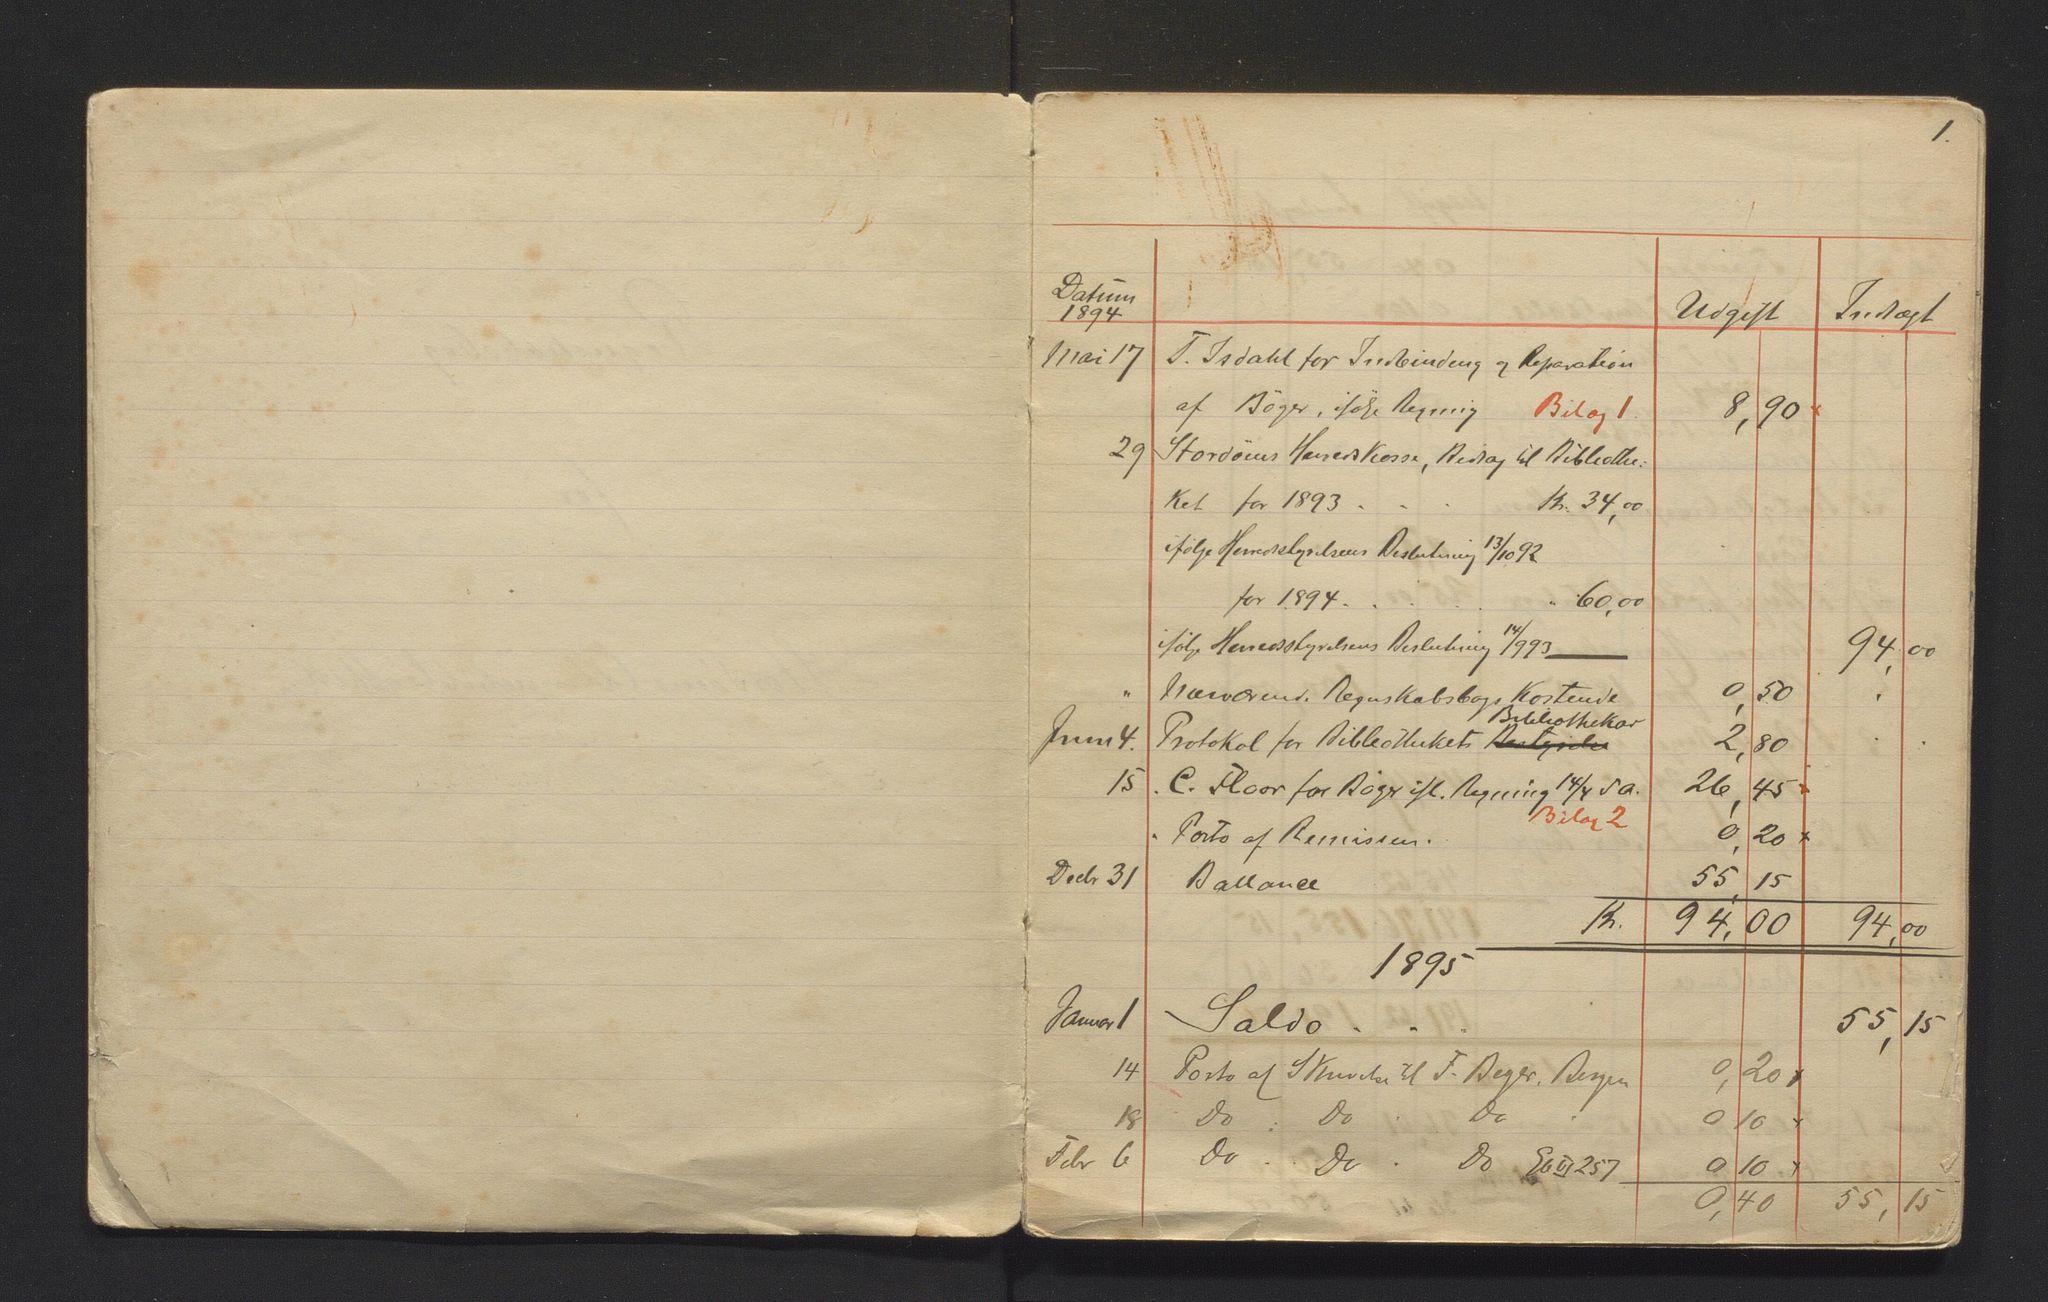 1.
Datum 1894 Udgift Indtægt
Mai 17 T. Isdahl for Indbinding og Reparation
af Böger, ifölge Regning Bilag 1 8,90
29 Stordöens Herredskasse, Bidrag til Bibliothe-
ket for 1893 . . . Kr. 34,00
ifölge Herredsstyrelsens Beslutning 13/10 92
for 1894 . . . . " 60,00
ifölge Herredsstyrelsens Beslutning 14/9 93 94,00
" Nærværend. Regnskabsbogs Kostende 0,50
Bibliothekar
Juni 4. Protokol for Bibliothekets 2,80
15 C. Floor for Böger ifl. Regning 14/4 s.a. 26,45
Bilag 2
" Porto af Remissen. 0,20
Decbr 31 Ballance 55,15
Kr. 94,00 94,00
1895
Januar 1 Saldo . . . 55,15
14 Porto af Skrivelse til F. Beyer, Bergen 0,20
18 Do . Do . Do . 0 10
Febr 6 Do . . Do . Do 257 0 10
0,40 55,15